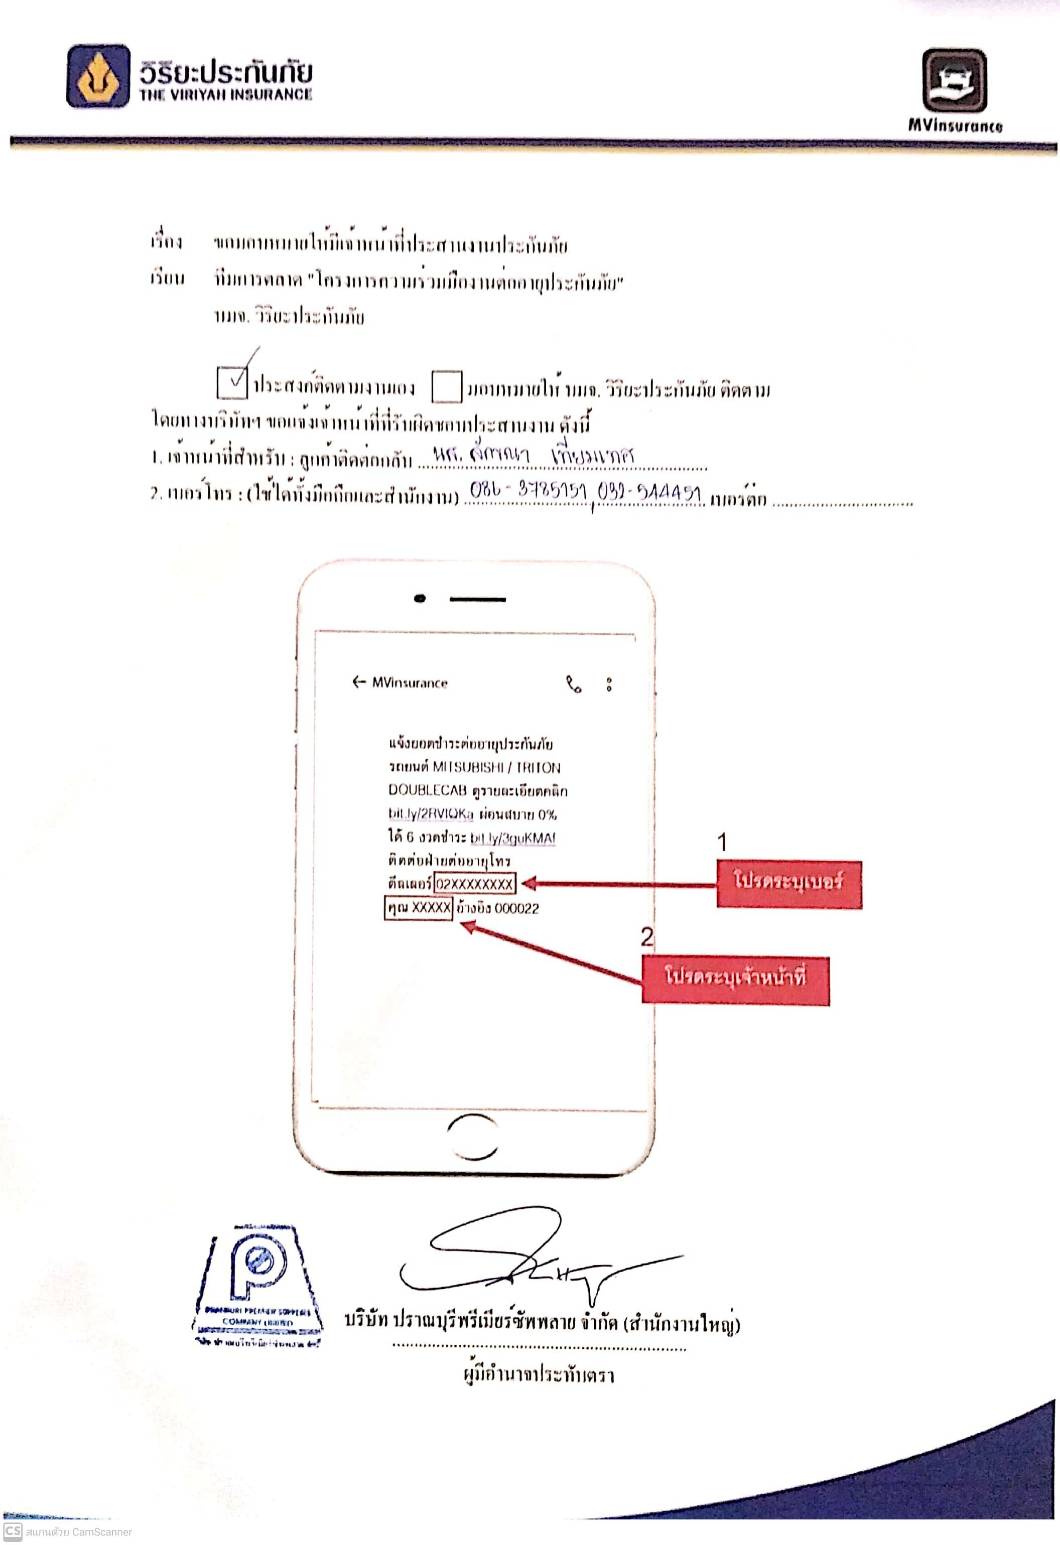 วิริยะประกันภัย
THE VIRIYAH INSURANCE
MVinsurance
เรื่อง ขอมอบหมายให้มีเจ้าหน้าที่ประสานงานประกันภัย
เรียน ทีมการตลาด "โครงการความร่วมมืองานต่ออายุประกันภัย"
บมจ. วิริยะประกันภัย
ประสงค์ติดตามงานเอง มอบหมายให้ บมจ. วิริยะประกันภัย ติดตาม
โดยทางบริษัทฯ ขอแจ้งเจ้าหน้าที่ที่รับผิดชอบประสานงาน ดังนี้
1. เจ้าหน้าที่สำหรับ : ลูกค้าติดต่อกลับ
2. เบอร์โทร : (ใช้ได้ทั้งมือถือและสำนักงาน) 086-3785151, 032-544451 เบอร์ต่อ
← MVinsurance
แจ้งยอดชำระต่ออายุประกันภัย
รถยนต์ MITSUBISHI / TRITON
DOUBLECAB ดูรายละเอียดคลิก
bit.ly/2RVIQKa ผ่อนสบาย 0%
ได้ 6 งวดชำระ bit.ly/3guKMAf
ติดต่อฝ่ายต่ออายุโทร
ดีลเลอร์ 02XXXXXXXX
คุณ XXXXX อ้างอิง 000022
1
โปรดระบุเบอร์
2
โปรดระบุเจ้าหน้าที่
PRANBURI PREMIER SUPPLIES
COMPANY LIMITED
บริษัท ปราณบุรีพรีเมียร์ซัพพลาย จำกัด (สำนักงานใหญ่)
ผู้มีอำนาจประทับตรา
CS สแกนด้วย CamScanner